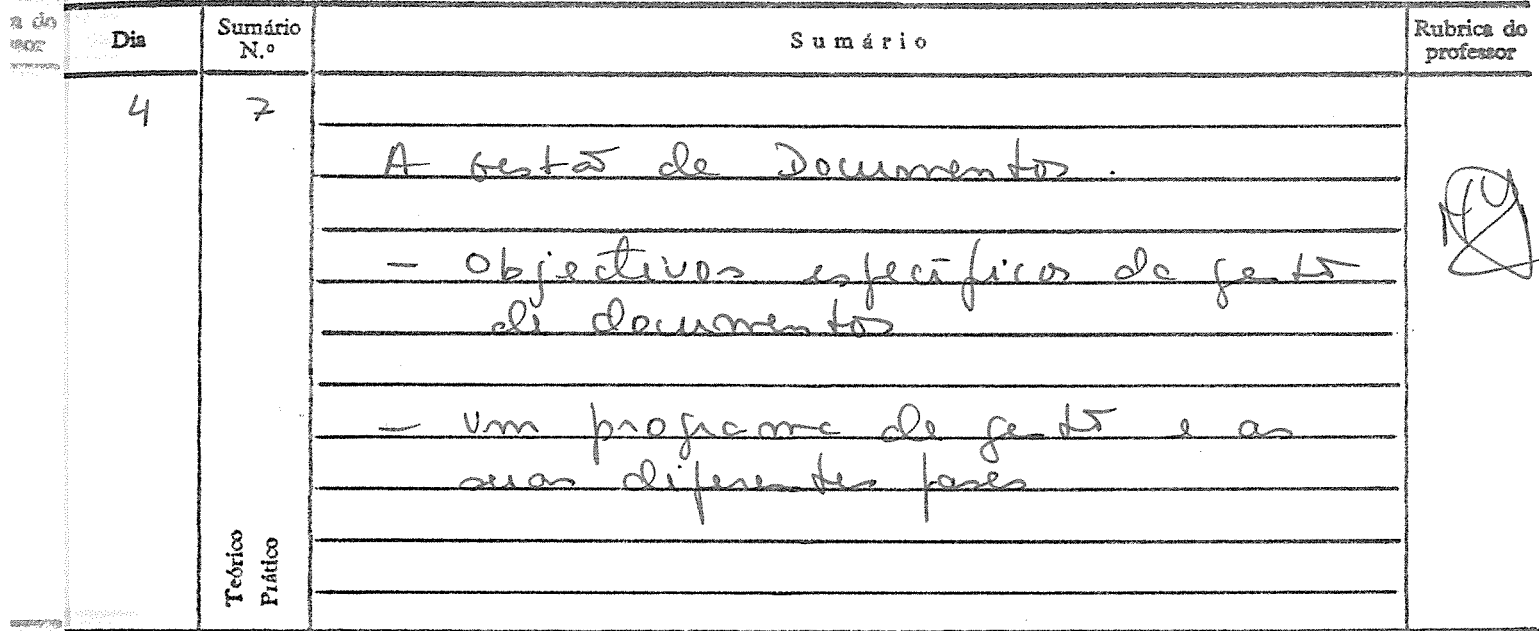 a do
sor
Dia
Sumário
N.º
Sumário
Rubrica do
professor
4
7
A Gestão de Documentos.
- Objectivos específicos da gestão
de documentos
- Um programa de gestão e as
suas diferentes fases
Teórico
Prático